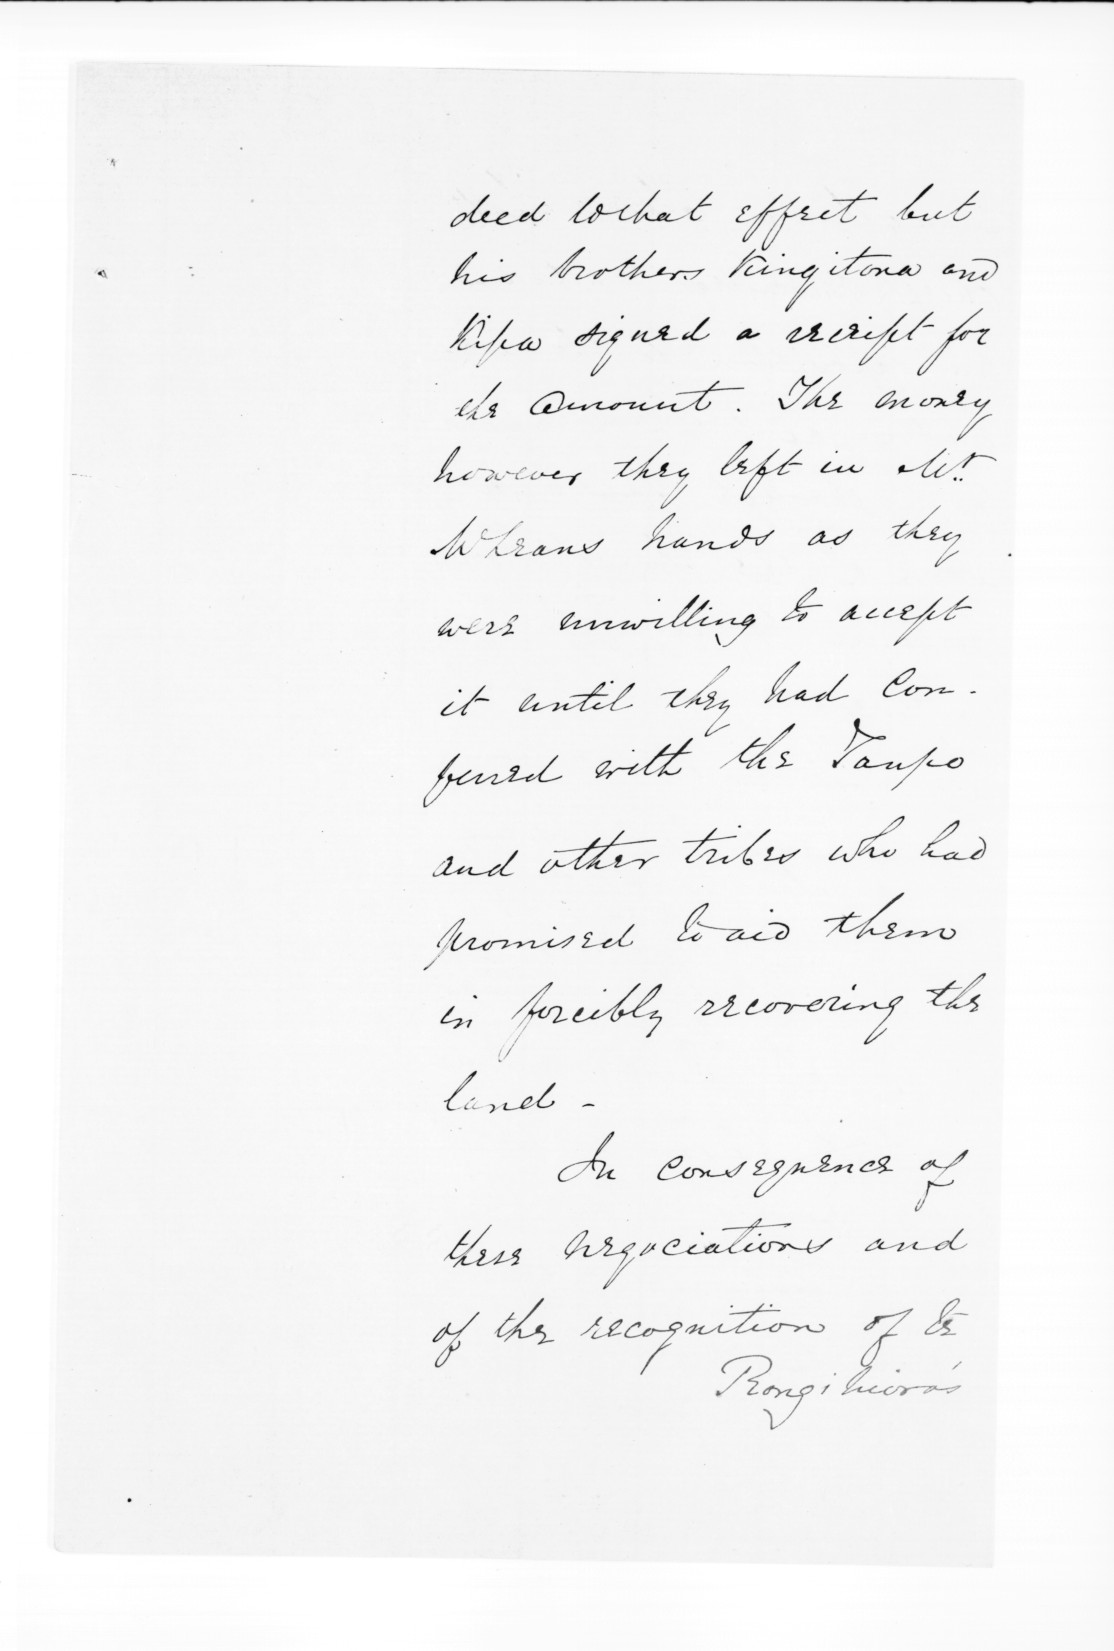 deed to that effect but
his brothers Kingitona and
Kipa signed a receipt for
the amount. The money
however they left in Mr.
Wheans hands as they
were unwilling to accept
it until they had Con-
ferred with the Taupo
and other tribes who had
promised to aid them
in forcibly recovering the
land -
In consequence of
these negociations and
of the recognition of Te
Rongihiora's